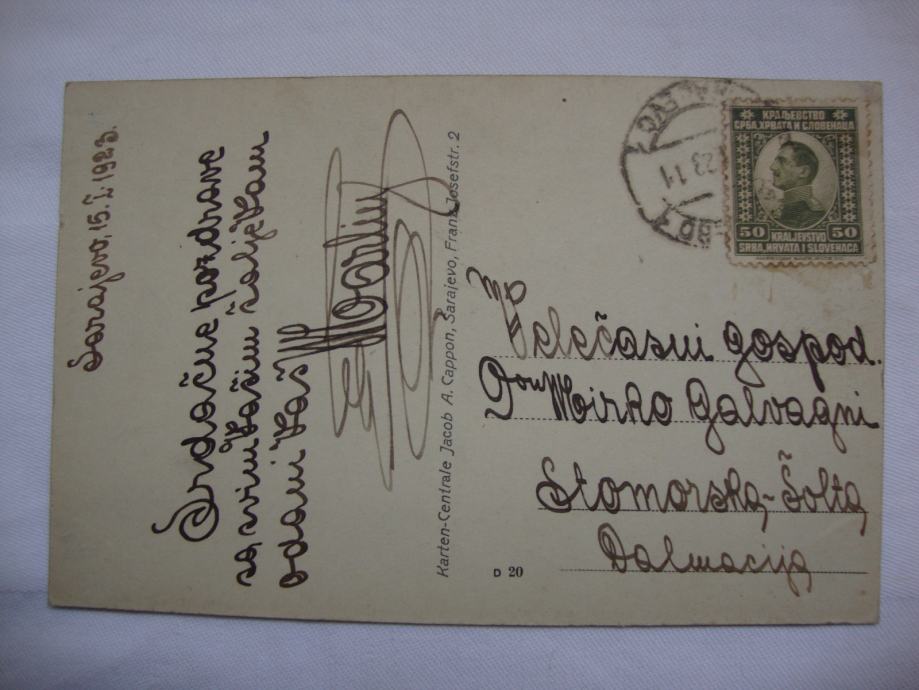 Sarajevo, 15. I. 1923.
Srdačne pozdrave
sa svim Vašim šalje Vam
odani Vaš
Karten-Centrale Jacob A. Cappon, Sarajevo, Franz Josefstr. 2
КРАЉЕВСТВО
СРБА, ХРВАТА И СЛОВЕНАЦА
50 50
KRALJEVSTVO
SRBA, HRVATA I SLOVENACA
23 11
Velečasni gospod.
Don Mirko Galvagni
Stomorska, Šolta,
Dalmacija
D 20